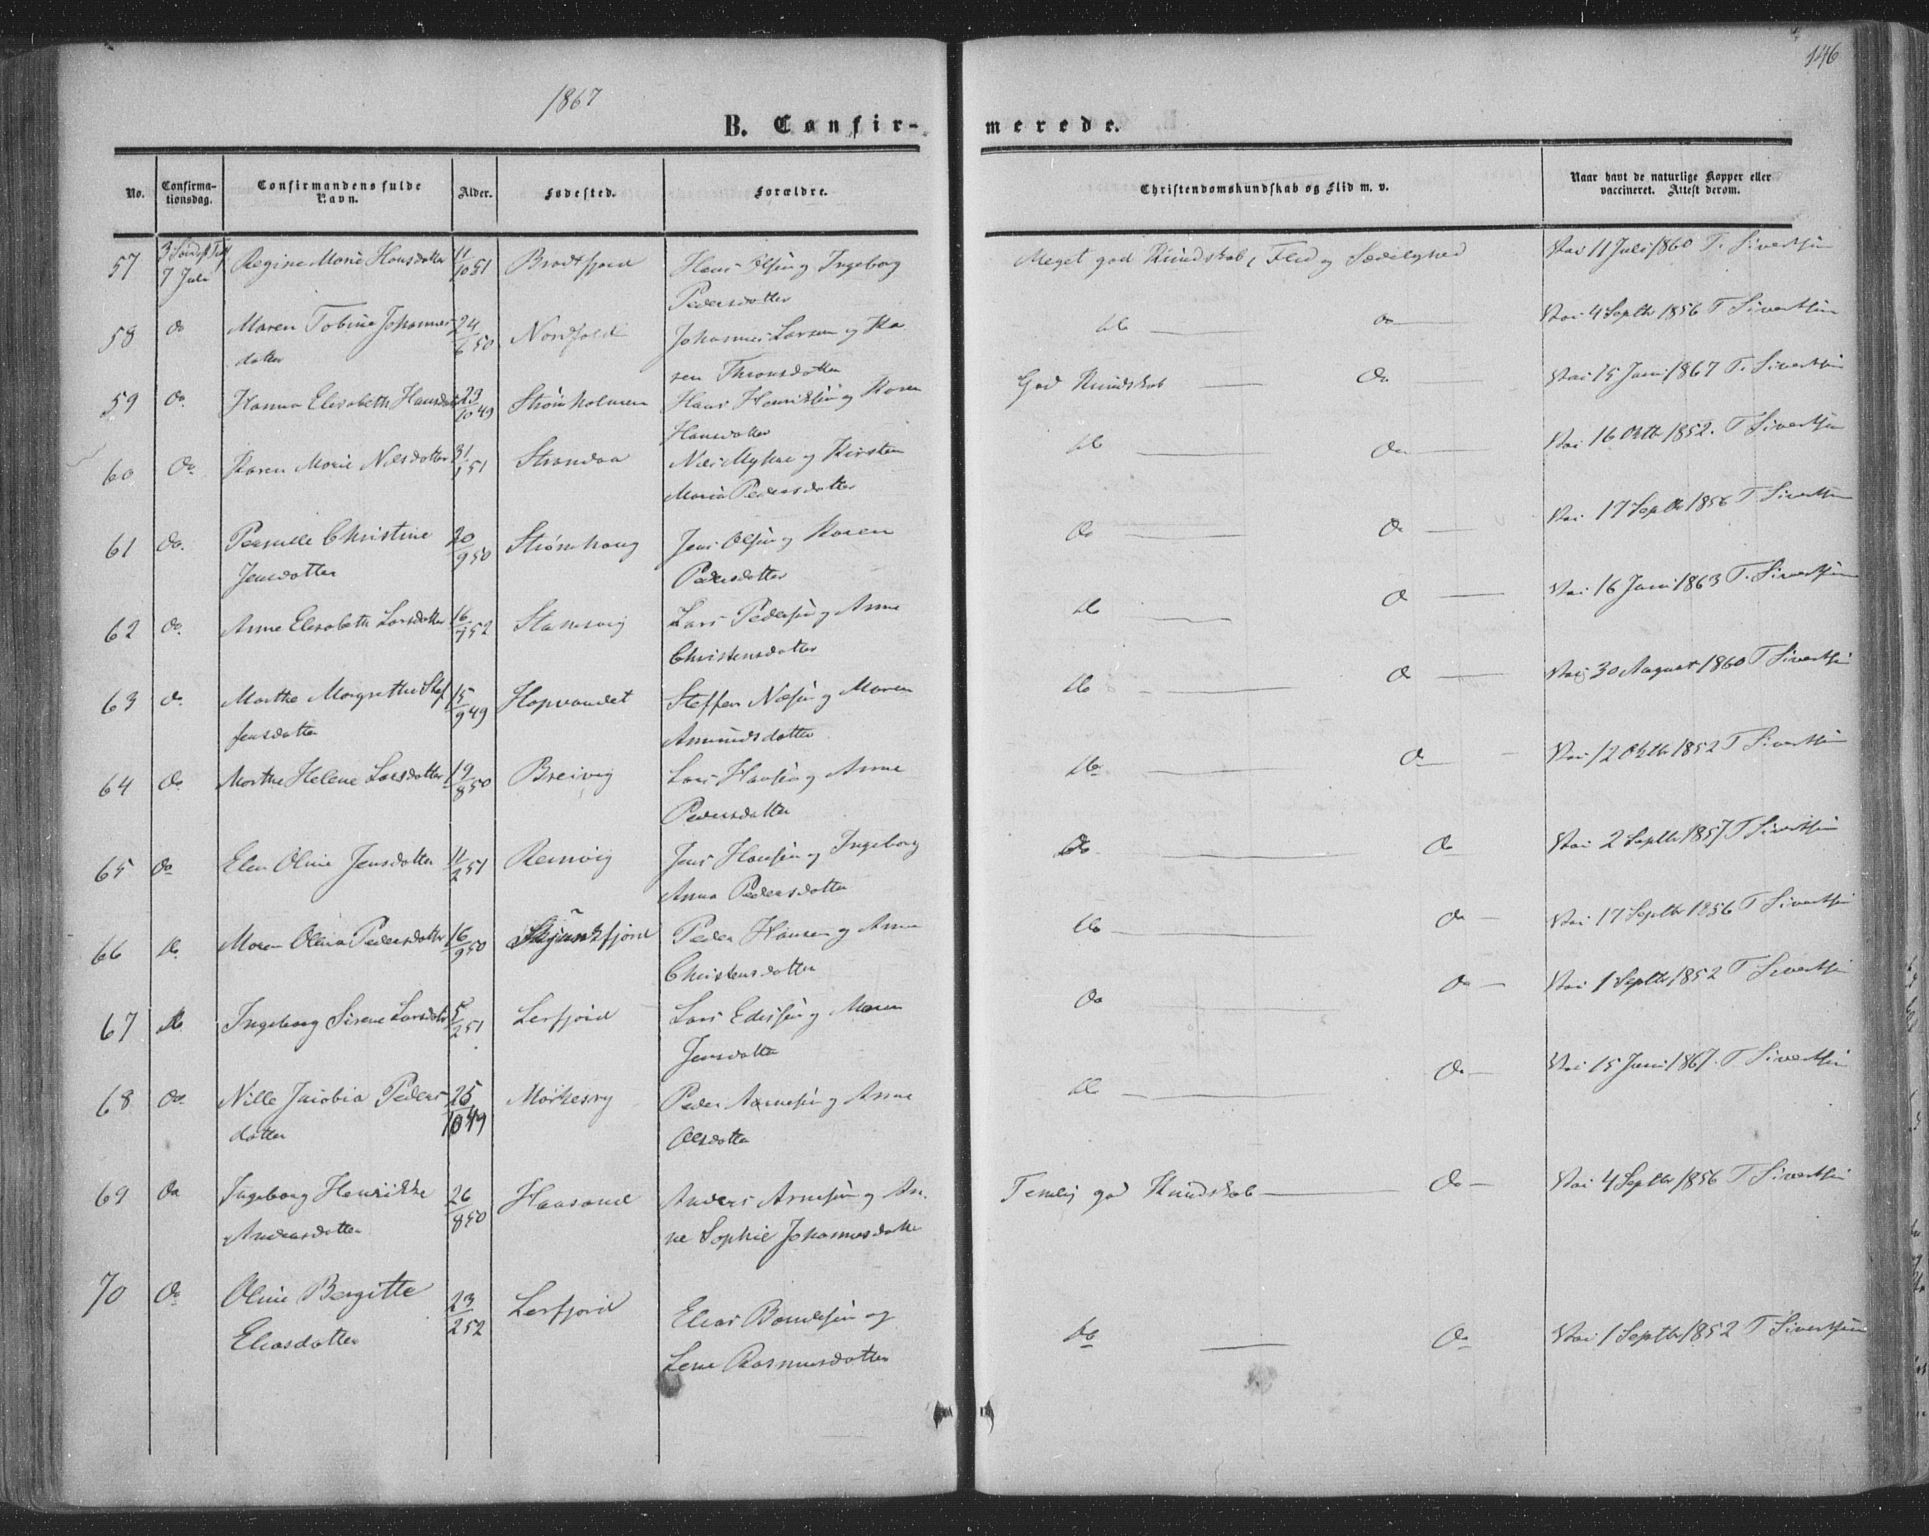 146
1867
B. Confir-
merede.
No.
Confirma-
tionsdag.
Confirmandens fulde
Navn.
Alder.
Fødested.
Forældre.
Christendomskundskab og Flid m. v.
Naar havt de naturlige Kopper eller
vaccineret. Attest derom.
57 7 Juli Regine Marie Hansdatter 11/10 51 Brodtfjord Hans Olsen og Ingeborg Meget god Kundskab, Flid og Sædelighed Vac 11 Juli 1860 T. Sivertsen
Pedersdatter
58 do Maren Tobine Johannes 24/6 50 Nordfold Johannes Larsen og Ka do do Vac 4 Septbr 1856 T Sivertsen
datter ren Thronsdatter
59 do. Hanna Elisabeth Hansdatter 23/10 49 Strømholmen Hans Henriksen og Karen God Kundskab do Vac 15 Juni 1867 T. Sivertsen
Hansdatter
60 do. Karen Marie Nilsdatter 31/1 51 Strandaa Nils Myhre og Kirsten do do Vac 16 Octbr 1852. T Sivertsen
Maria Pedersdatter
61 do. Pernille Christine 20/9 50 Strømhaug Jens Olsen og Karen do do Vac 17 Septbr 1856 T. Sivertsen
Jensdatter Pedersdatter
62 do. Anne Elisabeth Larsdatter 16/4 52 Stamsvig Lars Pedersen og Anne do do Vac 16 Juni 1863 T. Sivertsen
Christensdatter
63 do Marthe Margrethe Stef 15/9 49 Hopvandet Steffen Nilsen og Maren do do Vac 30 August 1860 T Sivertsen
fensdatter Amundsdatter
64 do Marthe Helene Larsdatter 19/8 50 Breivig Lars Hansen og Anne do do Vac 12 Octbr 1852 T Sivertsen
Pedersdatter
65 do Elen Oline Jensdatter 11/2 51 Remvig Jens Hansen og Ingeborg do do Vac 2 Septbr 1857 T Sivertsen
Anna Pedersdatter
66 do Maren Olina Pedersdatter 16/9 50 Peder Hansen og Anne do do Vac 17 Septbr 1856 T Sivertsen
Christensdatter
67 do Ingeborg Sirene Larsdatter 5/2 51 Lerfjord Lars Edisen og Maren do do Vac 1 Septbr 1852 T Sivertsen
Jensdatter
68 do Nille Jacobia Peders 25/10 49 Mørkesvig Peder Arnesen og Anne do do Vac 15 Juni 1867. T Sivertsen
datter Olsdatter
69 do Ingeborg Henrikke 26/8 50 Haasand Anders Arnesen og An- Temlig god Kundskab do Vac 4 Septbr 1856 T Sivertsen
Andersdatter ne Sophie Johannesdatter
70 do Oline Bergitte 23/2 52 Lerfjord Elias og do do Vac 1 Septbr 1852 T Sivertsen
Eliasdatter Lene Rasmusdatter